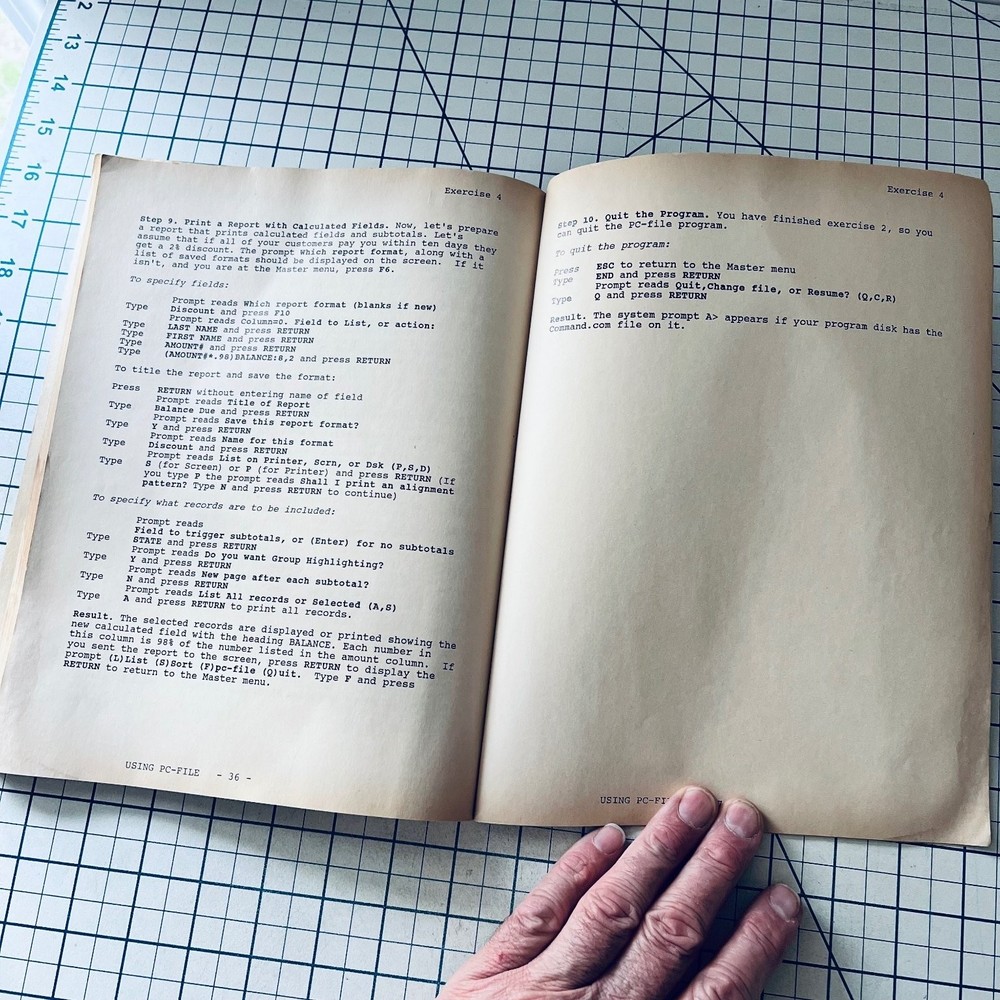 2
13
14
15
16
17
18
Exercise 4
Step 9. Print a Report with Calculated Fields. Now, let's prepare
a report that prints calculated fields and subtotals. Let's
assume that if all of your customers pay you within ten days they
get a 2% discount. The prompt Which report format, along with a
list of saved formats should be displayed on the screen. If it
isn't, and you are at the Master menu, press F6.
To specify fields:
Prompt reads Which report format (blanks if new)
Type Discount and press F10
Prompt reads Column=0. Field to List, or action:
Type LAST NAME and press RETURN
Type FIRST NAME and press RETURN
Type AMOUNT# and press RETURN
Type (AMOUNT#*.98)BALANCE:8,2 and press RETURN
To title the report and save the format:
Press RETURN without entering name of field
Prompt reads Title of Report
Type Balance Due and press RETURN
Prompt reads Save this report format?
Type Y and press RETURN
Prompt reads Name for this format
Type Discount and press RETURN
Prompt reads List on Printer, Scrn, or Dsk (P,S,D)
Type S (for Screen) or P (for Printer) and press RETURN (If
you type P the prompt reads Shall I print an alignment
pattern? Type N and press RETURN to continue)
To specify what records are to be included:
Prompt reads
Field to trigger subtotals, or (Enter) for no subtotals
Type STATE and press RETURN
Prompt reads Do you want Group Highlighting?
Type Y and press RETURN
Prompt reads New page after each subtotal?
Type N and press RETURN
Prompt reads List All records or Selected (A,S)
Type A and press RETURN to print all records.
Result. The selected records are displayed or printed showing the
new calculated field with the heading BALANCE. Each number in
this column is 98% of the number listed in the amount column. If
you sent the report to the screen, press RETURN to display the
prompt (L)List (S)Sort (F)pc-file (Q)uit. Type F and press
RETURN to return to the Master menu.
USING PC-FILE - 36 -
Exercise 4
Step 10. Quit the Program. You have finished exercise 2, so you
can quit the PC-file program.
To quit the program:
Press ESC to return to the Master menu
Type END and press RETURN
Prompt reads Quit,Change file, or Resume? (Q,C,R)
Type Q and press RETURN
Result. The system prompt A> appears if your program disk has the
Command.com file on it.
USING